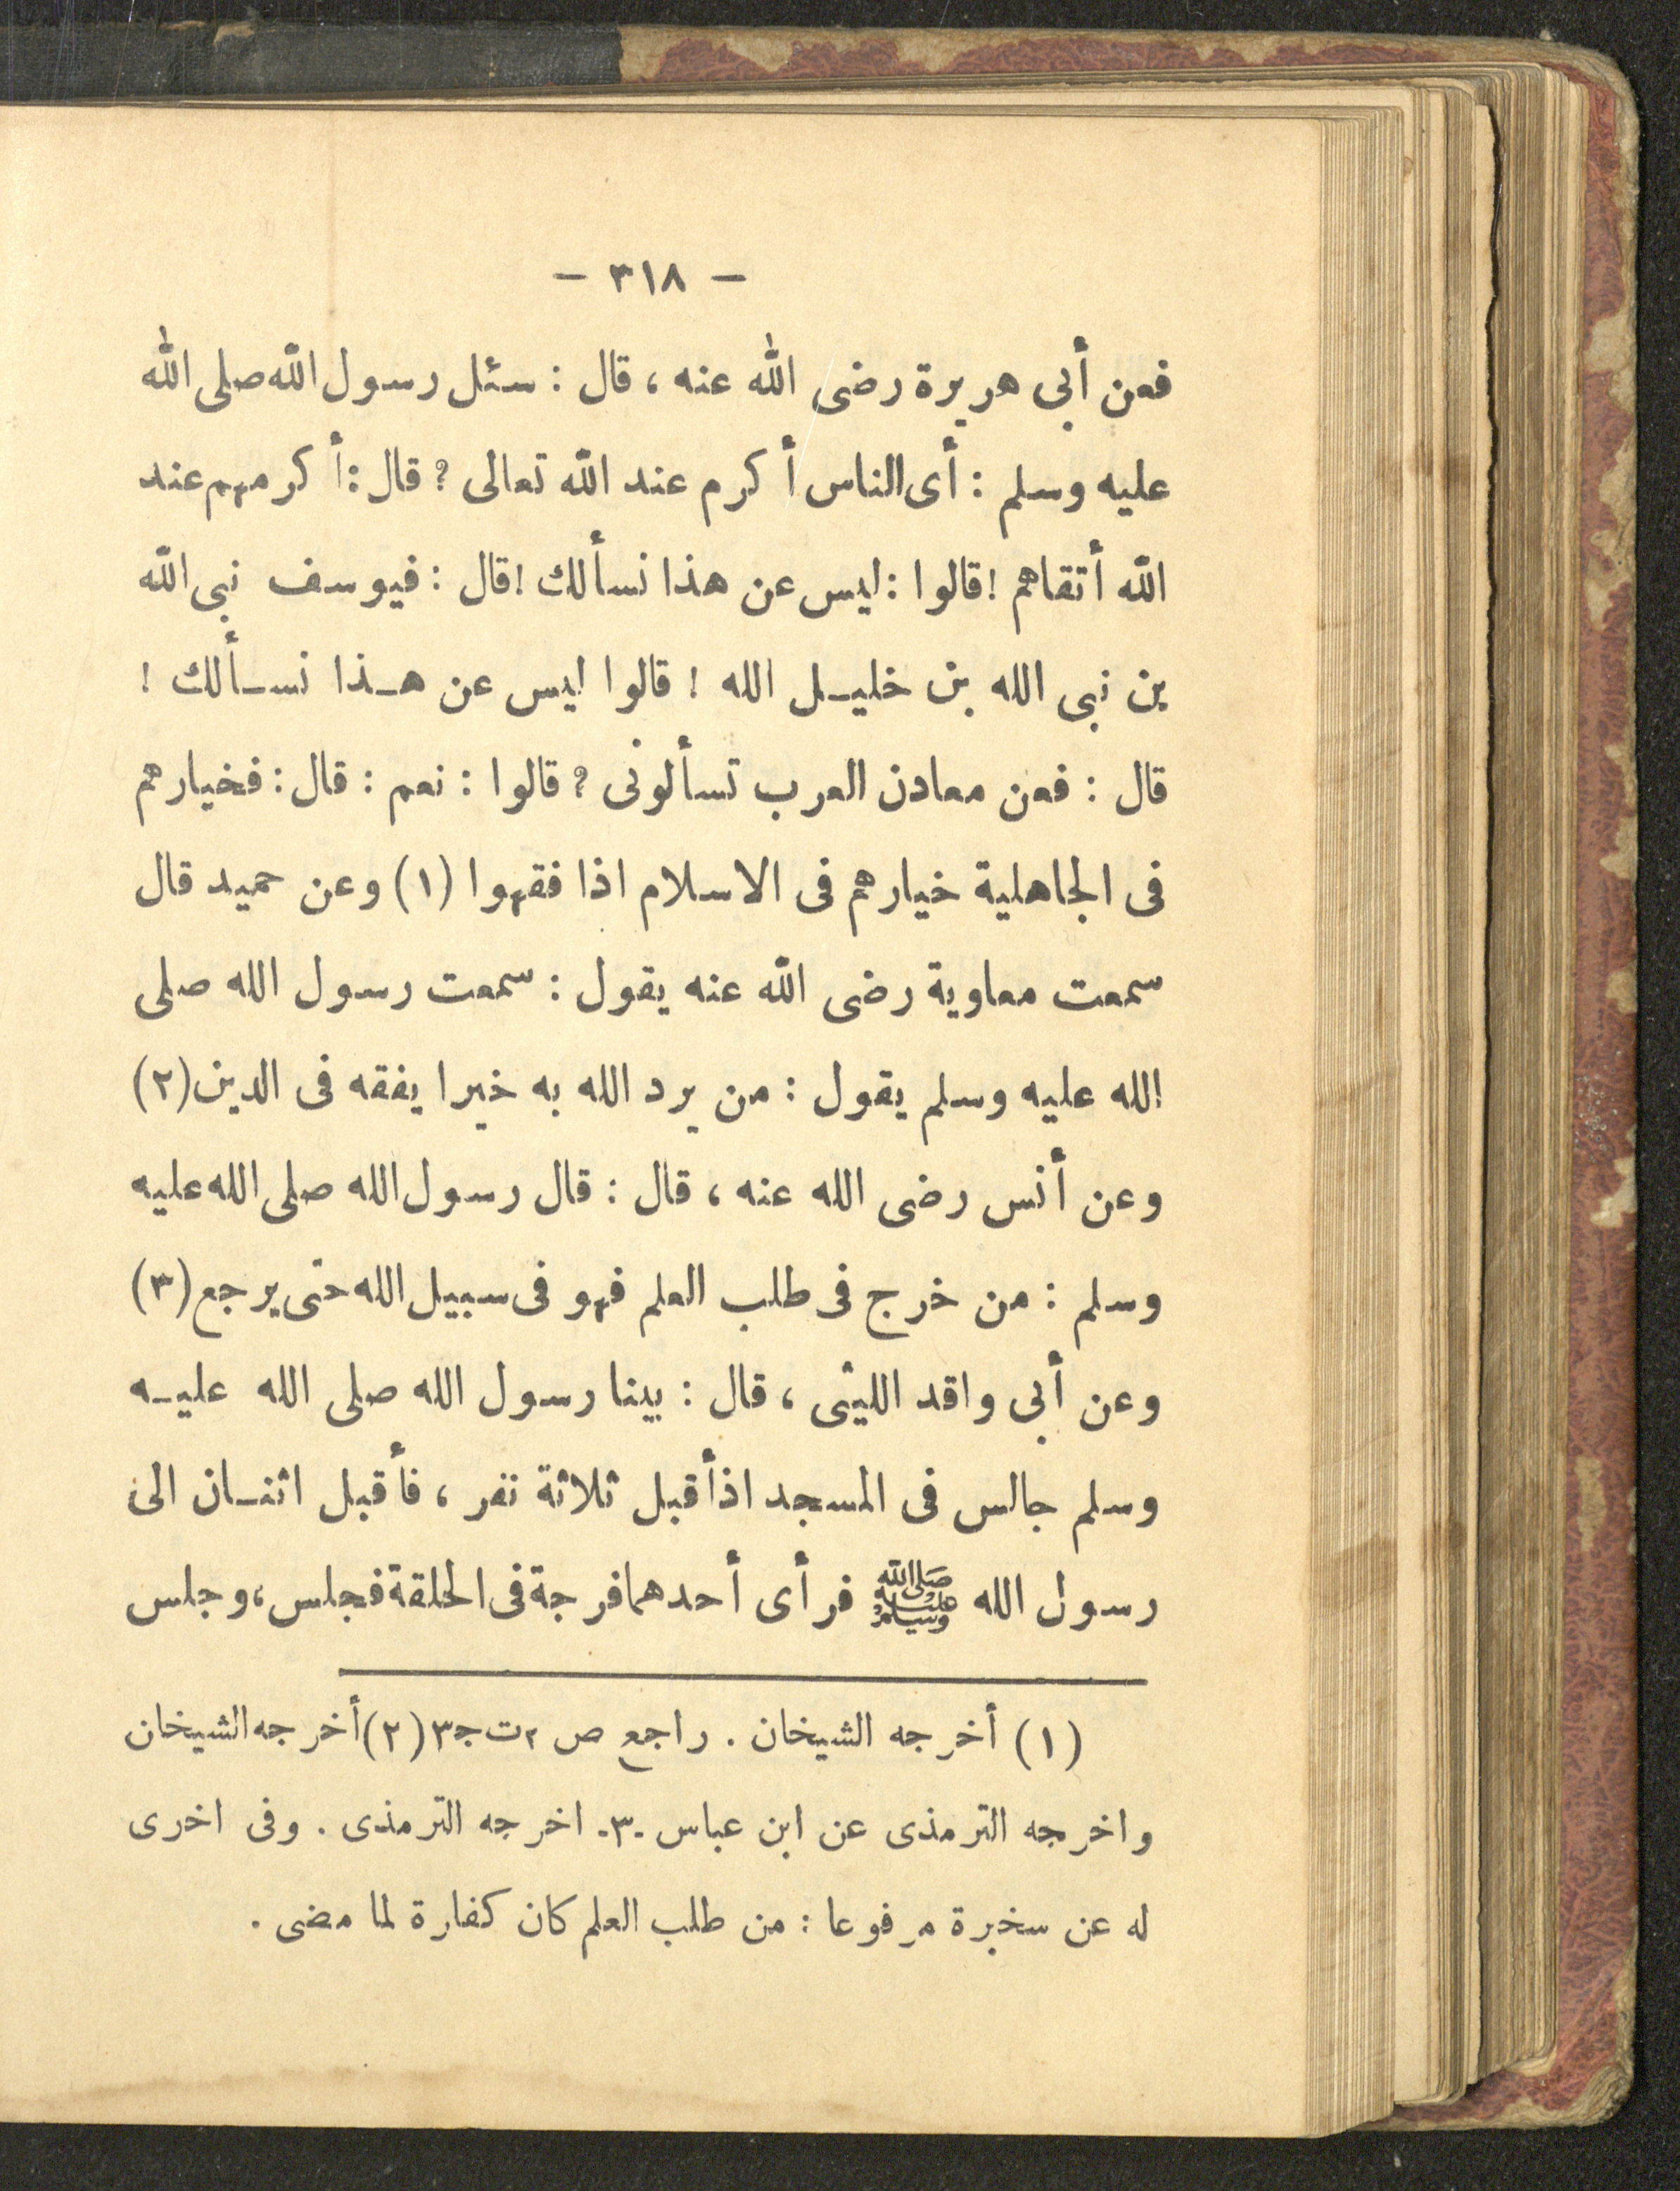 — ٣١٨ —
فعن أبى هريرة رضى الله عنه ، قال : سئل رسول الله صلى الله
عليه وسلم : أى الناس أكرم عند الله تعالى ؟ قال : أكرمهم عند
الله أتقاهم ! قالوا : ليس عن هذا نسألك ! قال : فيوسف نبى الله
بن نبى الله بن خليـل الله ! قالوا ليس عن هـذا نسـألك !
قال : فعن معادن العرب تسألونى ؟ قالوا : نعم : قال : فخيارهم
فى الجاهلية خيارهم فى الاسلام اذا فقهوا (١) وعن حميد قال
سمعت معاوية رضى الله عنه يقول : سمعت رسول الله صلى
الله عليه وسلم يقول : من يرد الله به خيرا يفقه فى الدين (٢)
وعن أنس رضى الله عنه ، قال : قال رسول الله صلى الله عليه
وسلم : من خرج فى طلب العلم فهو فى سبيل الله حتى يرجع (٣)
وعن أبى واقد الليثى ، قال : بينا رسول الله صلى الله عليـه
وسلم جالس فى المسجد اذ أقبل ثلاثة نفر ، فأقبل اثنـان الى
رسول الله ﷺ فرأى أحدهما فرجة فى الحلقة فجلس ، وجلس
(١) أخرجه الشيخان . راجع ص ٢ت ج٣ (٢) أخرجه الشيخان
واخرجه الترمذى عن ابن عباس -٣- اخرجه الترمذى . وفى اخرى
له عن سخبرة مرفوعا : من طلب العلم كان كفارة لما مضى .